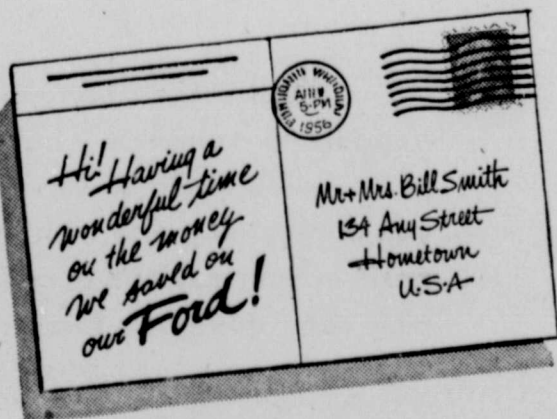 Hi! Having a
wonderful time
on the money
we saved on
our Ford!
5-PM
1956
Mr+Mrs. Bill Smith
134 Any Street
Hometown
U.S.A